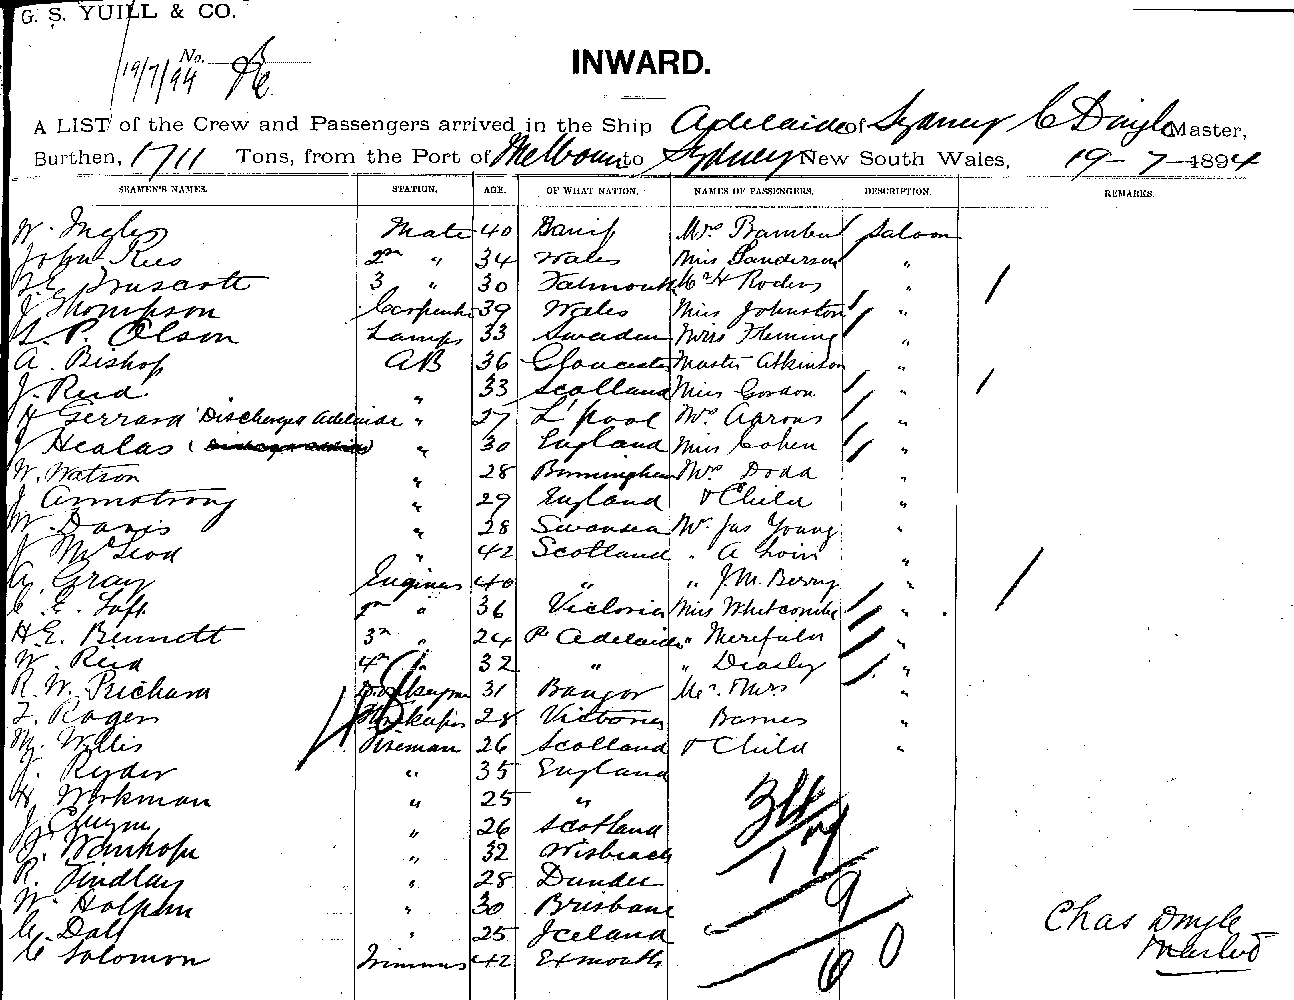 G. S. YUILL & CO.
No.
19/7/94
INWARD.
A LIST of the Crew and Passengers arrived in the Ship Adelaide of Sydney C Doyle Master,
Burthen, 1711 Tons, from the Port of Melbourne to Sydney New South Wales, 19-7-1894
SEAMEN'S NAMES. STATION. AGE. OF WHAT NATION. NAMES OF PASSENGERS. DESCRIPTION. REMARKS.
W. Mate 40 Banff Mrs Saloon
John Rees 2nd " 34 Wales Miss Sanderson "
Pruscott 3 " 30 Falmouth "
J Thompson Carpenter 39 Wales Miss Johnston "
P. Olson Lamps 33 Sweden Miss Fleming "
A. Bishop AB 36 Gloucester Master Atkinson "
J. Reid " 33 Scotland Miss Gordon "
Gerrard Discharged Adelaide " 27 L'pool Mrs Aarons "
J " 30 England Miss Cohen "
W. Watson " 28 Birmingham Mrs Dodd "
J Armstrong " 29 England & Child "
W. Davis " 28 Swansea Mr Jas Young "
J McLeod " 42 Scotland " A "
Gray 40 " " J.M. Berry "
2nd " 36 Victoria Miss Whitcombe "
H.E. Bennett 3rd " 24 Pt Adelaide " "
W. Reid 4th " 32 " " "
R. W. Pricham 31 Bangor Mr & Mrs "
Rogers 28 Victoria Barnes "
Willis Fireman 26 Scotland & Child "
J. Ryder " 35 England
Workman " 25 "
J. " 26 Scotland
J. " 32 Wisbeach
R. Findlay " 28 Dundee
W. " 30 Brisbane
" 25 Iceland
C Solomon Trimmer 42 Exmouth
48
34
17
9
60
Chas Doyle
Master